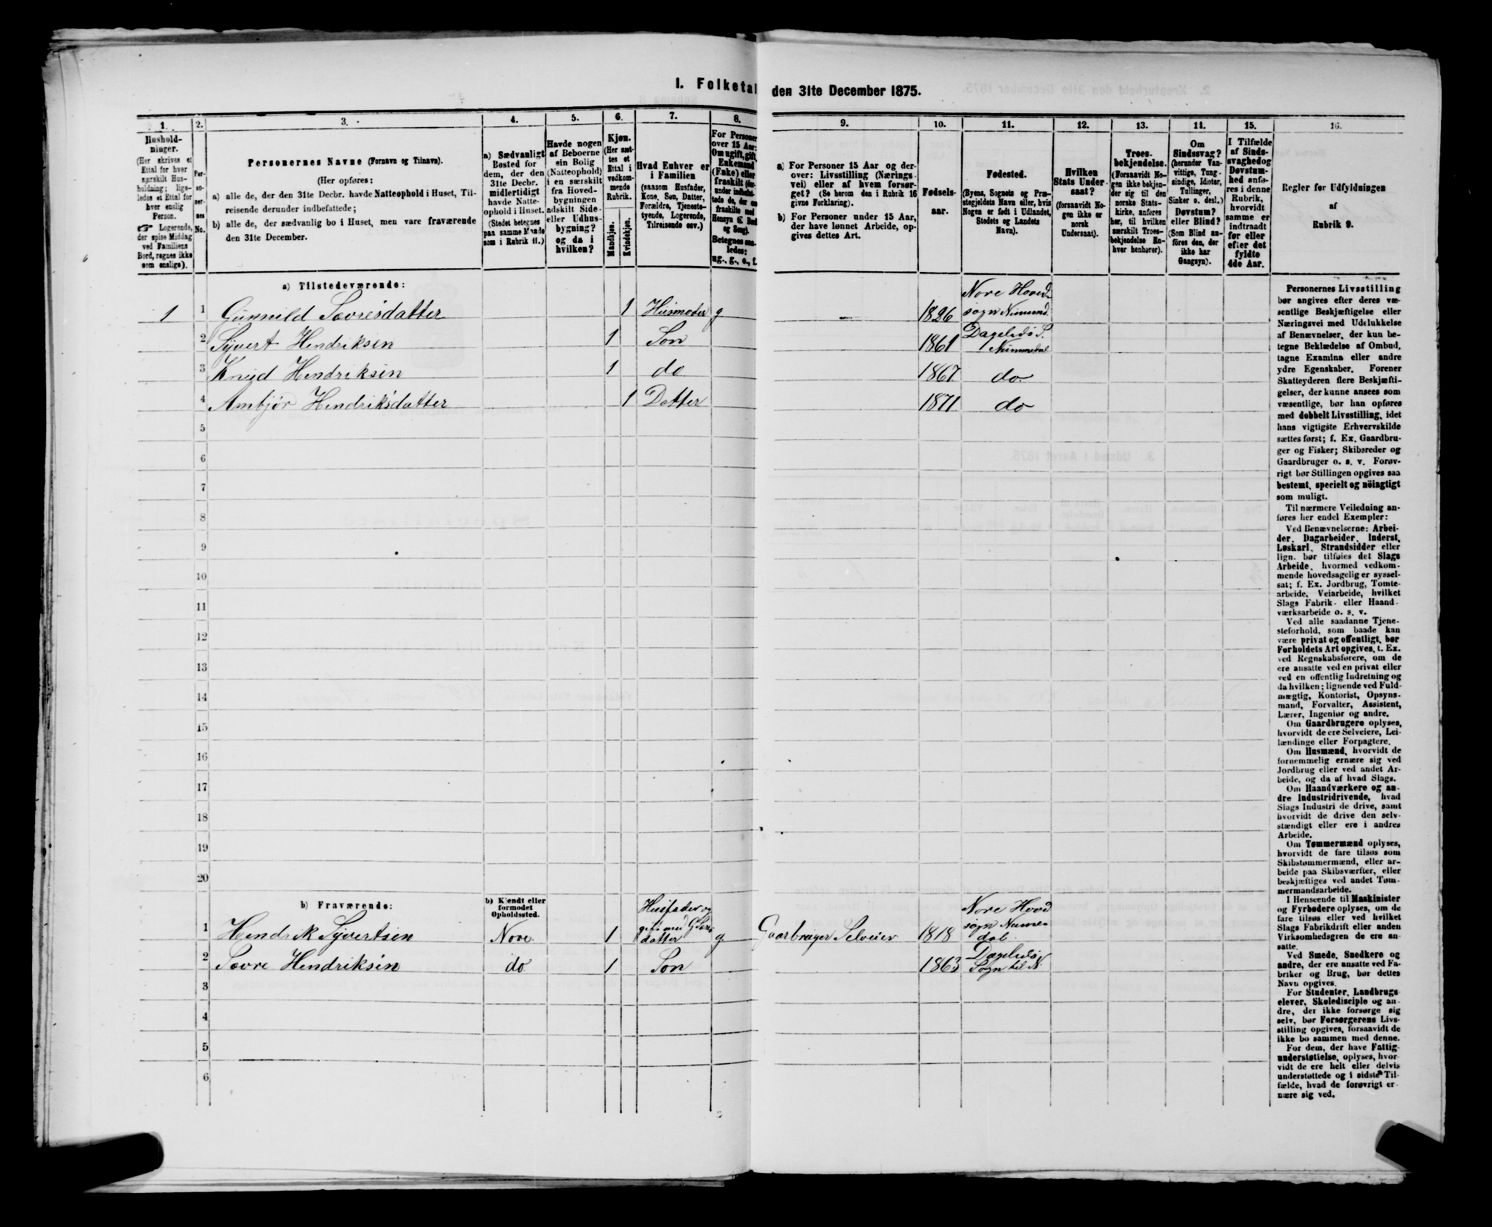 I. Folketal den 31te December 1875.
1.
Hushold-
ninger.
(Her skrives et
Ettal for hver
særskilt Hus-
holdning; lige-
ledes et Ettal for
hver enslig
Person.
☞ Logerende,
der spise Middag
ved Familiens
Bord, regnes ikke
som enslige).
2.
No.
3.
Personernes Navne (Fornavn og Tilnavn).
(Her opføres:
a) alle de, der den 31te Decbr. havde Natteophold i Huset, Til-
reisende derunder indbefattede;
b) alle de, der sædvanlig bo i Huset, men vare fraværende
den 31te December.
4.
a) Sædvanligt
Bosted for
dem, der den
31te Decbr.
midlertidigt
havde Natte-
ophold i Huset.
(Stedet betegnes
paa samme Maade
som i Rubrik 11.)
5.
Havde nogen
af Beboerne
sin Bolig
(Natteophold)
i en særskilt
fra Hoved-
bygningen
adskilt Side-
eller Udhus-
bygning?
og da i
hvilken?
6.
Kjøn.
(Her sæt-
tes et
Ettal i
vedkom-
mende
Rubrik.
Mandkjøn.
Kvindekjøn.
7.
Hvad Enhver er
i Familien
(saasom Husfader,
Kone, Søn, Datter,
Forældre, Tjeneste-
tyende, Logerende,
Tilreisende osv.)
8.
For Personer
over 15 Aar:
Om ugift, gift,
Enkemand
(Enke) eller
fraskilt
Betegnes saa-
ledes:
ug., g., e., f.
9.
a) For Personer 15 Aar og der-
over: Livsstilling (Nærings-
vei) eller af hvem forsør-
get? (Se herom den i Rubrik 16
givne Forklaring).
b) For Personer under 15 Aar,
der have lønnet Arbeide, op-
gives dettes Art.
10.
Fødsels-
aar.
11.
Fødested.
(Byens, Sognets og Præ-
stegjeldets Navn eller, hvis
Nogen er født i Udlandet,
Stedets og Landets
Navn).
12.
Hvilken
Stats Under-
saat?
(forsaavidt No-
gen ikke er
norsk
Undersaat).
13.
Troes-
bekjendelse.
(Forsaavidt No-
gen ikke bekjen-
der sig til den
norske Stats-
kirke, anføres
her, til hvilken
særskilt Troes-
bekjendelse En-
hver henhører).
14.
Om
Sindssvag?
(herunder Van-
vittige, Tung-
sindige, Idioter,
Tullinger,
Sinker o. desl.)
Døvstum?
eller Blind?
(Som Blind an-
føres den, der
ikke har
Gangsyn).
15.
I Tilfælde
af Sinds-
svaghed og
Døvstum-
hed anfø-
res i denne
Rubrik,
hvorvidt
samme er
indtraadt
før eller
efter det
fyldte
4de Aar.
16.
Regler for Udfyldningen
af
Rubrik 9.
a) Tilstedeværende:
1 1 Gunnild Sævresdatter 1 Husmoder g — 1826 Nore Hoved-
sogn Numed.
2 Syvert Hendriksen 1 Søn 1861 Dagelids S.
i Nummedal
3 Knud Hendriksen 1 do 1867 do
4 Ambjør Hendriksdatter 1 Datter 1871 do
5
6
7
8
9
10
11
12
13
14
15
16
17
18
19
20
b) Fraværende:
b) Kjendt eller
formodet
Opholdssted.
1 Hendrik Syvertsen Nore 1 Husfader og
datter g Gaarbruger Selveier 1818 Nore Hovd
sogn Numme-
dal
2 Sævre Hendriksen do 1 Søn 1863 Dagelids
Sogn til N.
3
4
5
6
Personernes Livsstilling
bør angives efter deres væ-
sentlige Beskjæftigelse eller
Næringsvei med Udelukkelse
af Benævnelser, der kun be-
tegne Beklædelse af Ombud,
tagne Examina eller andre
ydre Egenskaber. Forener
Skatteyderen flere Beskjæfti-
gelser, der kunne ansees som
væsentlige, bør han opføres
med dobbelt Livsstilling, idet
hans vigtigste Erhvervskilde
sættes først; f. Ex. Gaardbru-
ger og Fisker; Skibsreder og
Gaardbruger o. s. v. Forøv-
rigt bør Stillingen opgives saa
bestemt, specielt og nöiagtigt
som muligt.
Til nærmere Veiledning an-
føres her endel Exempler:
Ved Benævnelserne: Arbei-
der, Dagarbeider, Inderst,
Løskarl, Strandsidder eller
lign. bør tilføies det Slags
Arbeide, hvormed vedkom-
mende hovedsagelig er syssel-
sat; f. Ex. Jordbrug, Tomte-
arbeide, Veiarbeide, hvilket
Slags Fabrik- eller Haand-
værksarbeide o. s. v.
Ved alle saadanne Tjene-
steforhold, som baade kan
være privat og offentligt, bør
Forholdets Art opgives, t. Ex.
ved Regnskabsførere, om de
ere ansatte ved en privat eller
ved en offentlig Indretning og
da hvilken; lignende ved Fuld-
mægtig, Kontorist, Opsyns-
mand, Forvalter, Assistent,
Lærer, Ingeniør og andre.
Om Gaardbrugere oplyses,
hvorvidt de ere Selveiere, Lei-
lændinge eller Forpagtere.
Om Husmænd, hvorvidt de
fornemmelig ernære sig ved
Jordbrug eller ved andet Ar-
beide, og da af hvad Slags.
Om Haandværkere og an-
dre Industridrivende, hvad
Slags Industri de drive, samt
hvorvidt de drive den selv-
stændigt eller ere i andres
Arbeide.
Om Tømmermænd oplyses,
hvorvidt de fare tilsøs som
Skibstømmermænd, eller ar-
beide paa Skibsværfter, eller
beskjæftiges ved andet Tøm-
mermandsarbeide.
I Henseende til Maskinister
og Fyrbødere oplyses, om de
fare tilsøs eller ved hvilket
Slags Fabrikdrift eller anden
Virksomhedsgren de ere an-
satte.
Ved Smede, Snedkere og
andre, der ere ansatte ved Fa-
briker og Brug, bør dettes
Navn opgives.
For Studenter, Landbrugs-
elever, Skoledisciple og an-
dre, der ikke forsørge sig
selv, bør Forsørgerens Livs-
stilling opgives, forsaavidt de
ikke bo sammen med denne.
For dem, der have Fattig-
understøttelse, oplyses, hvor-
vidt de ere helt eller delvis
understøttede og i sidste Til-
fælde, hvad de forøvrigt er-
nære sig ved.